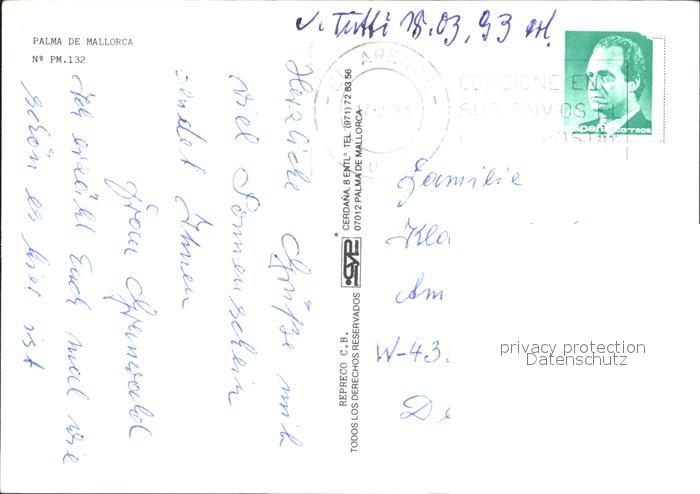 v. Tutti 18.03.93
PALMA DE MALLORCA
Nº PM.132
Herzliche Grüße mit
viel Sonnenschein
sendet Ihnen
Frau Grunwald
Ich erzähl Euch mal wie
schön es hier ist
REPRECO C.B.
TODOS LOS DERECHOS RESERVADOS
GYP
CERDAÑA, 8 ENTLº TEL. (971) 72 63 56
07012 PALMA DE MALLORCA
AREN
CONDICNE EN
SUS ENVIOS EL
España correos
Familie
Kla
Am
W-43.
De
privacy protection
Datenschutz